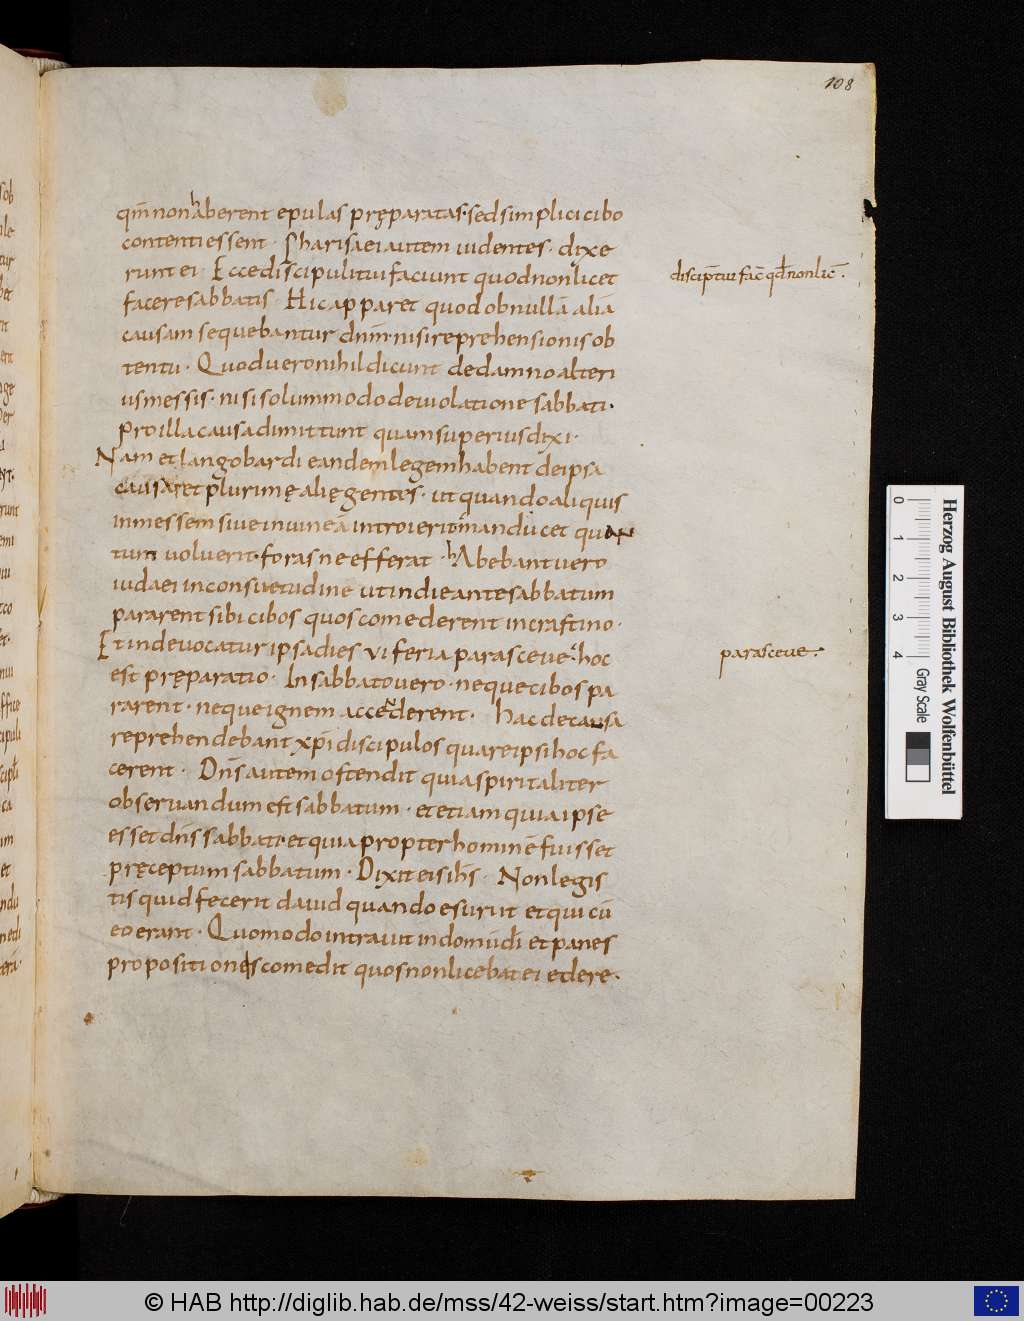 108
qm̅ non haberent epulas pręparatas· sed simplici cibo
contenti essent · Pharisaei autem uidentes · dixe
runt ei · Ecce discipuli tui faciunt quod non licet
facere sabbatis · Hic apparet quod ob nullā aliā
causam sequebantur dnm̅· nisi reprehensionis ob
tentu · Quod uero nihil dicunt de damno alteri
us messis · nisi solummodo de uiolatione sabbati·
pro illa causa dimittunt quam superius dixi·
Nam et langobardi eandem legem habent de ipsa
causa et plurimę alię gentes · ut quando aliquis
in messem siue in uineā introierit· manducet quan
tum uoluerit· foras ne efferat · hAbebant uero
iudaei in consuetudine ut in die ante sabbatum
pararent sibi cibos quos comederent in crastino·
Et inde uocatur ipsa dies vi feria parasceue· hoc
est pręparatio · In sabbato uero · neque cibos pa
rarent · neque ignem accenderent · hac de causa
reprehendebant xp̅i discipulos quare ipsi hoc fa
cerent · Dn̅s autem ostendit quia spiritaliter
obseruandum est sabbatum · et etiam quia ipse
esset dn̅s sabbati· et quia propter hominē fuisset
pręceptum sabbatum · Dixit eis ih̅s · Non legis
tis quid fecerit dauid quando esuriit et qui cū
eo erant · Quomodo intrauit in domū di̅ et panes
propositionis comedit quos non licebat ei edere·
discip̅ tui fac̅ qd̅ non lic̅·
parasceue·
0 1 2 3 4
Gray Scale
Herzog August Bibliothek Wolfenbüttel
© HAB http://diglib.hab.de/mss/42-weiss/start.htm?image=00223